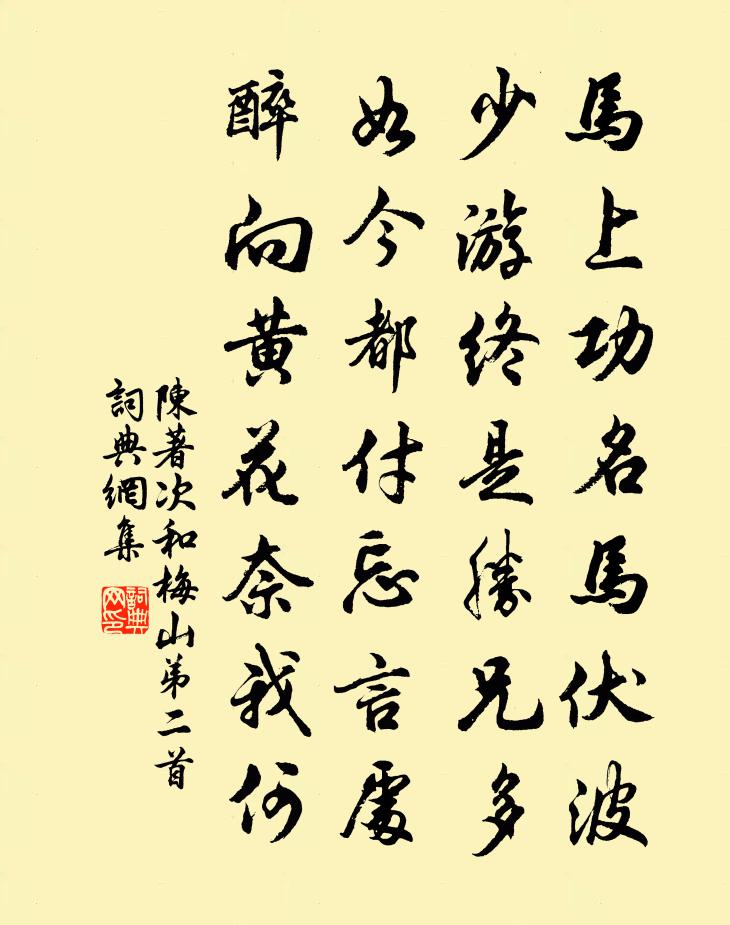 馬上功名馬伏波
少游終是勝兄多
如今都付忘言處
醉向黃花奈我何
陳著次和梅山弟二首
詞典網集
詞典网印